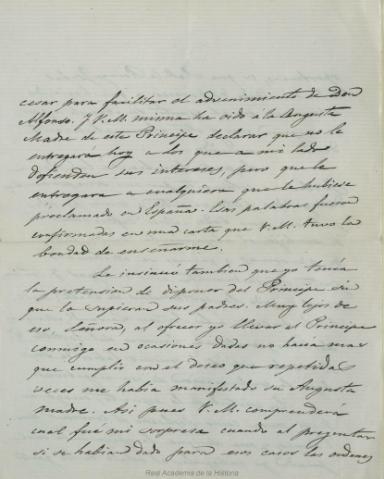 cesar para facilitar el advenimiento de Don
Alfonso. Y V. M. misma ha oido á la Augusta
Madre de este Principe declarar que no le
entregará hoy a los que a mi lado
defienden sus intereses, pero que le
entregara a cualquiera que le hubiese
proclamado en España. Esas palabras fueron
confirmadas en una carta que V. M. tuvo la
bondad de enseñarme.
Se insinuó tambien que yo tenía
la pretension de disponer del Principe sin
que lo supieran sus padres. Muy lejos de
eso, Señora, al ofrecer yo llevar el Principe
conmigo en ocasiones dadas no hacía mas
que cumplir con el deseo que repetidas
veces me habia manifestado su Augusta
madre. Asi pues V. M. comprenderá
cual fué mi sorpresa cuando al preguntar
si se habian dado para esos casos las ordenes
Real Academia de la Historia